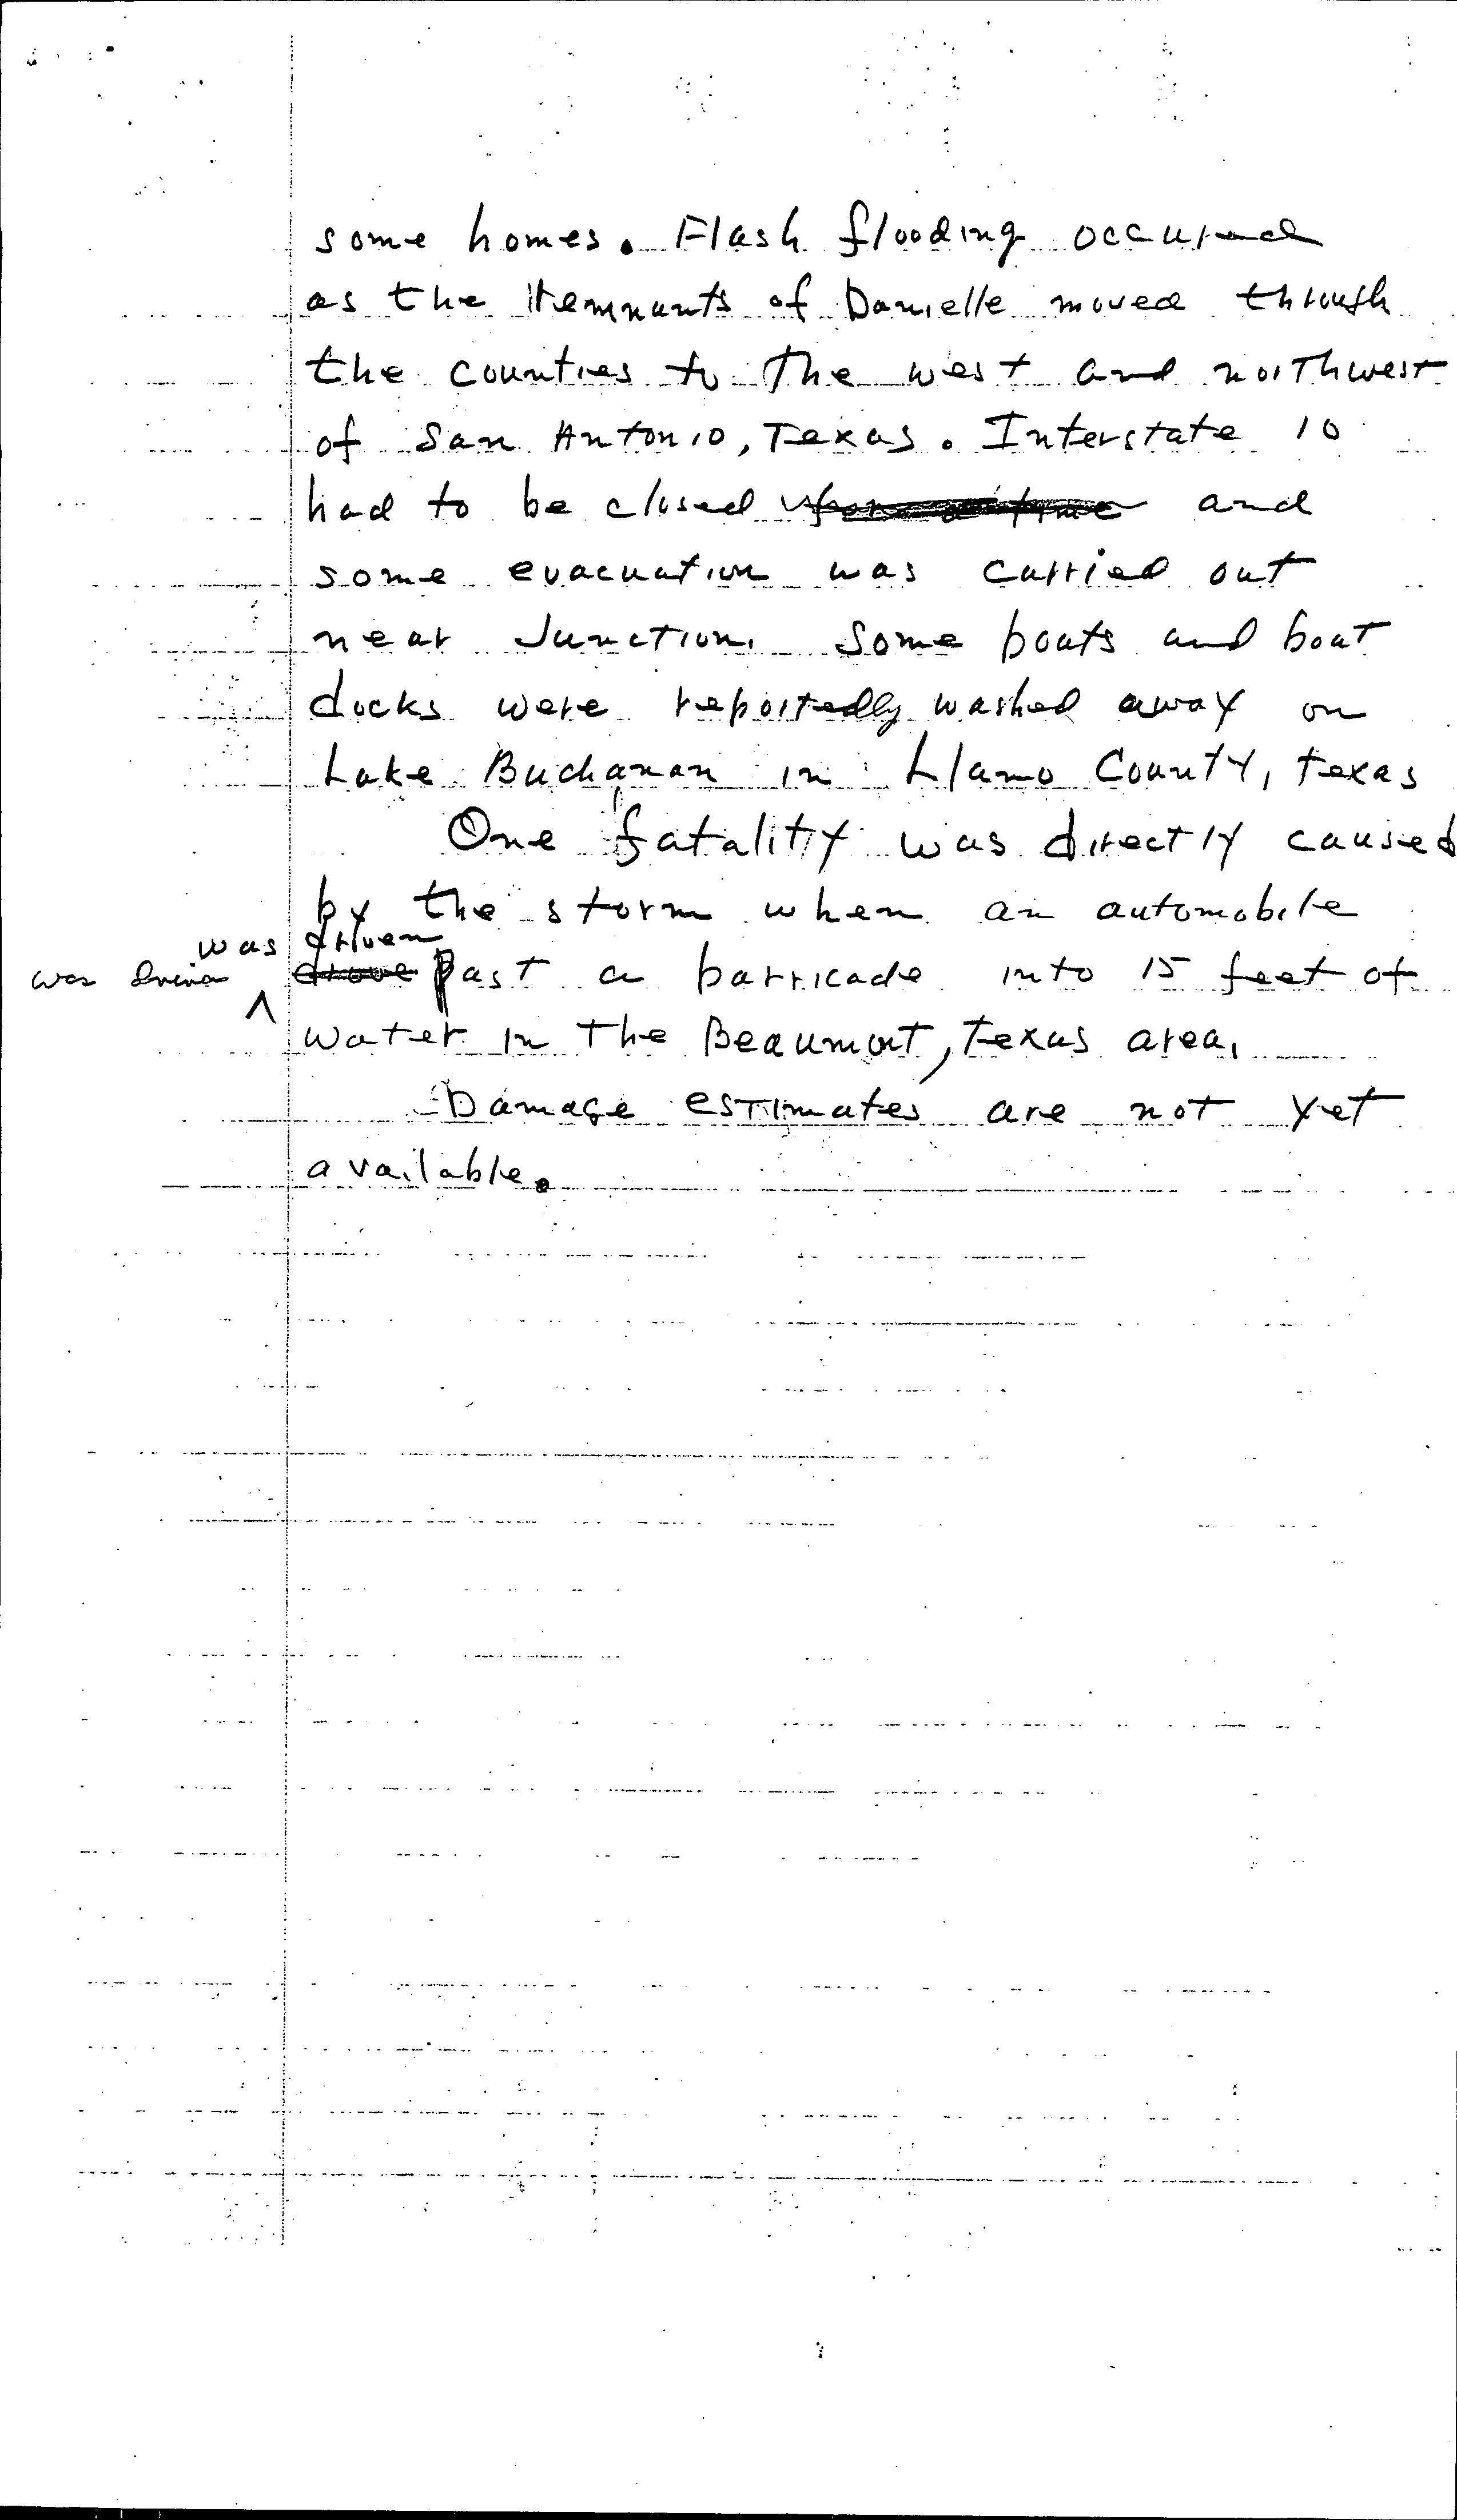 some homes. Flash flooding occured
as the remnants of Danielle moved through
the counties to the west and northwest
of San Antonio, Texas. Interstate 10
had to be closed for a time and
some evacuation was carried out
near Junction. Some boats and boat
docks were reportedly washed away on
Lake Buchanan in Llano County, Texas
One fatality was directly caused
by the storm when an automobile
was driven
was driven drove past a barricade into 15 feet of
water in the Beaumont, Texas area.
Damage estimates are not yet
available.